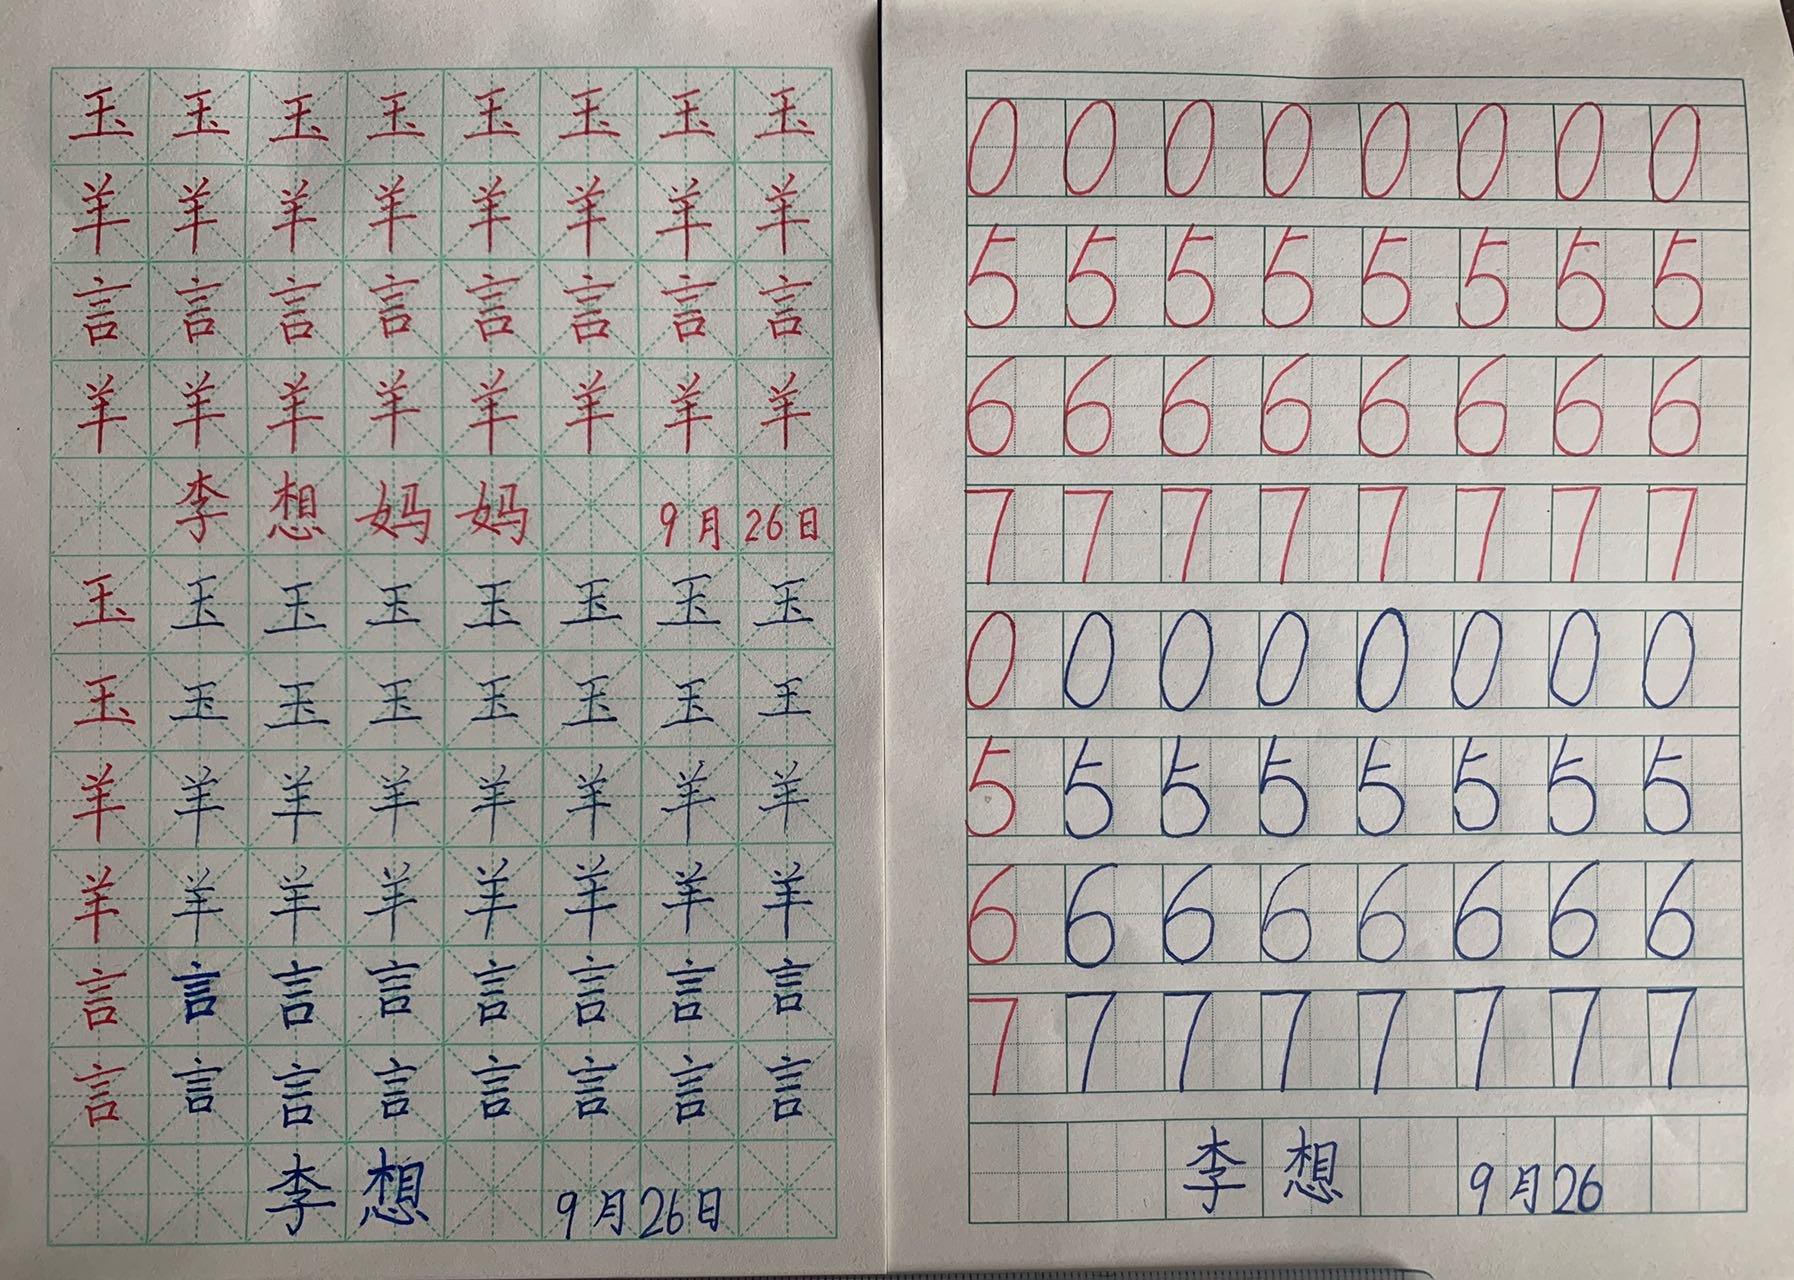 玉玉玉玉玉玉玉玉
羊羊羊羊羊羊羊羊
言言言言言言言言
羊羊羊羊羊羊羊羊
李想妈妈 9月26日
玉玉玉玉玉玉玉玉
玉玉玉玉玉玉玉玉
羊羊羊羊羊羊羊羊
羊羊羊羊羊羊羊羊
言言言言言言言言
言言言言言言言言
李想 9月26日
0 0 0 0 0 0 0 0
5 5 5 5 5 5 5 5
6 6 6 6 6 6 6 6
7 7 7 7 7 7 7 7
0 0 0 0 0 0 0 0
5 5 5 5 5 5 5 5
6 6 6 6 6 6 6 6
7 7 7 7 7 7 7 7
李想 9月26